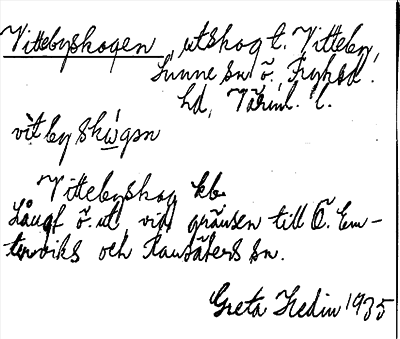 Vittebyskogen, utskog t. Vitteby,
Sunne sn ö. Fryksd.
hd, Värml. l.
vìt by skẁgən
Vittebyskog kb.
Långt ö.ut, vid gränsen till Ö. Em-
terviks och Ransäters sn.
Greta Hedin 1935